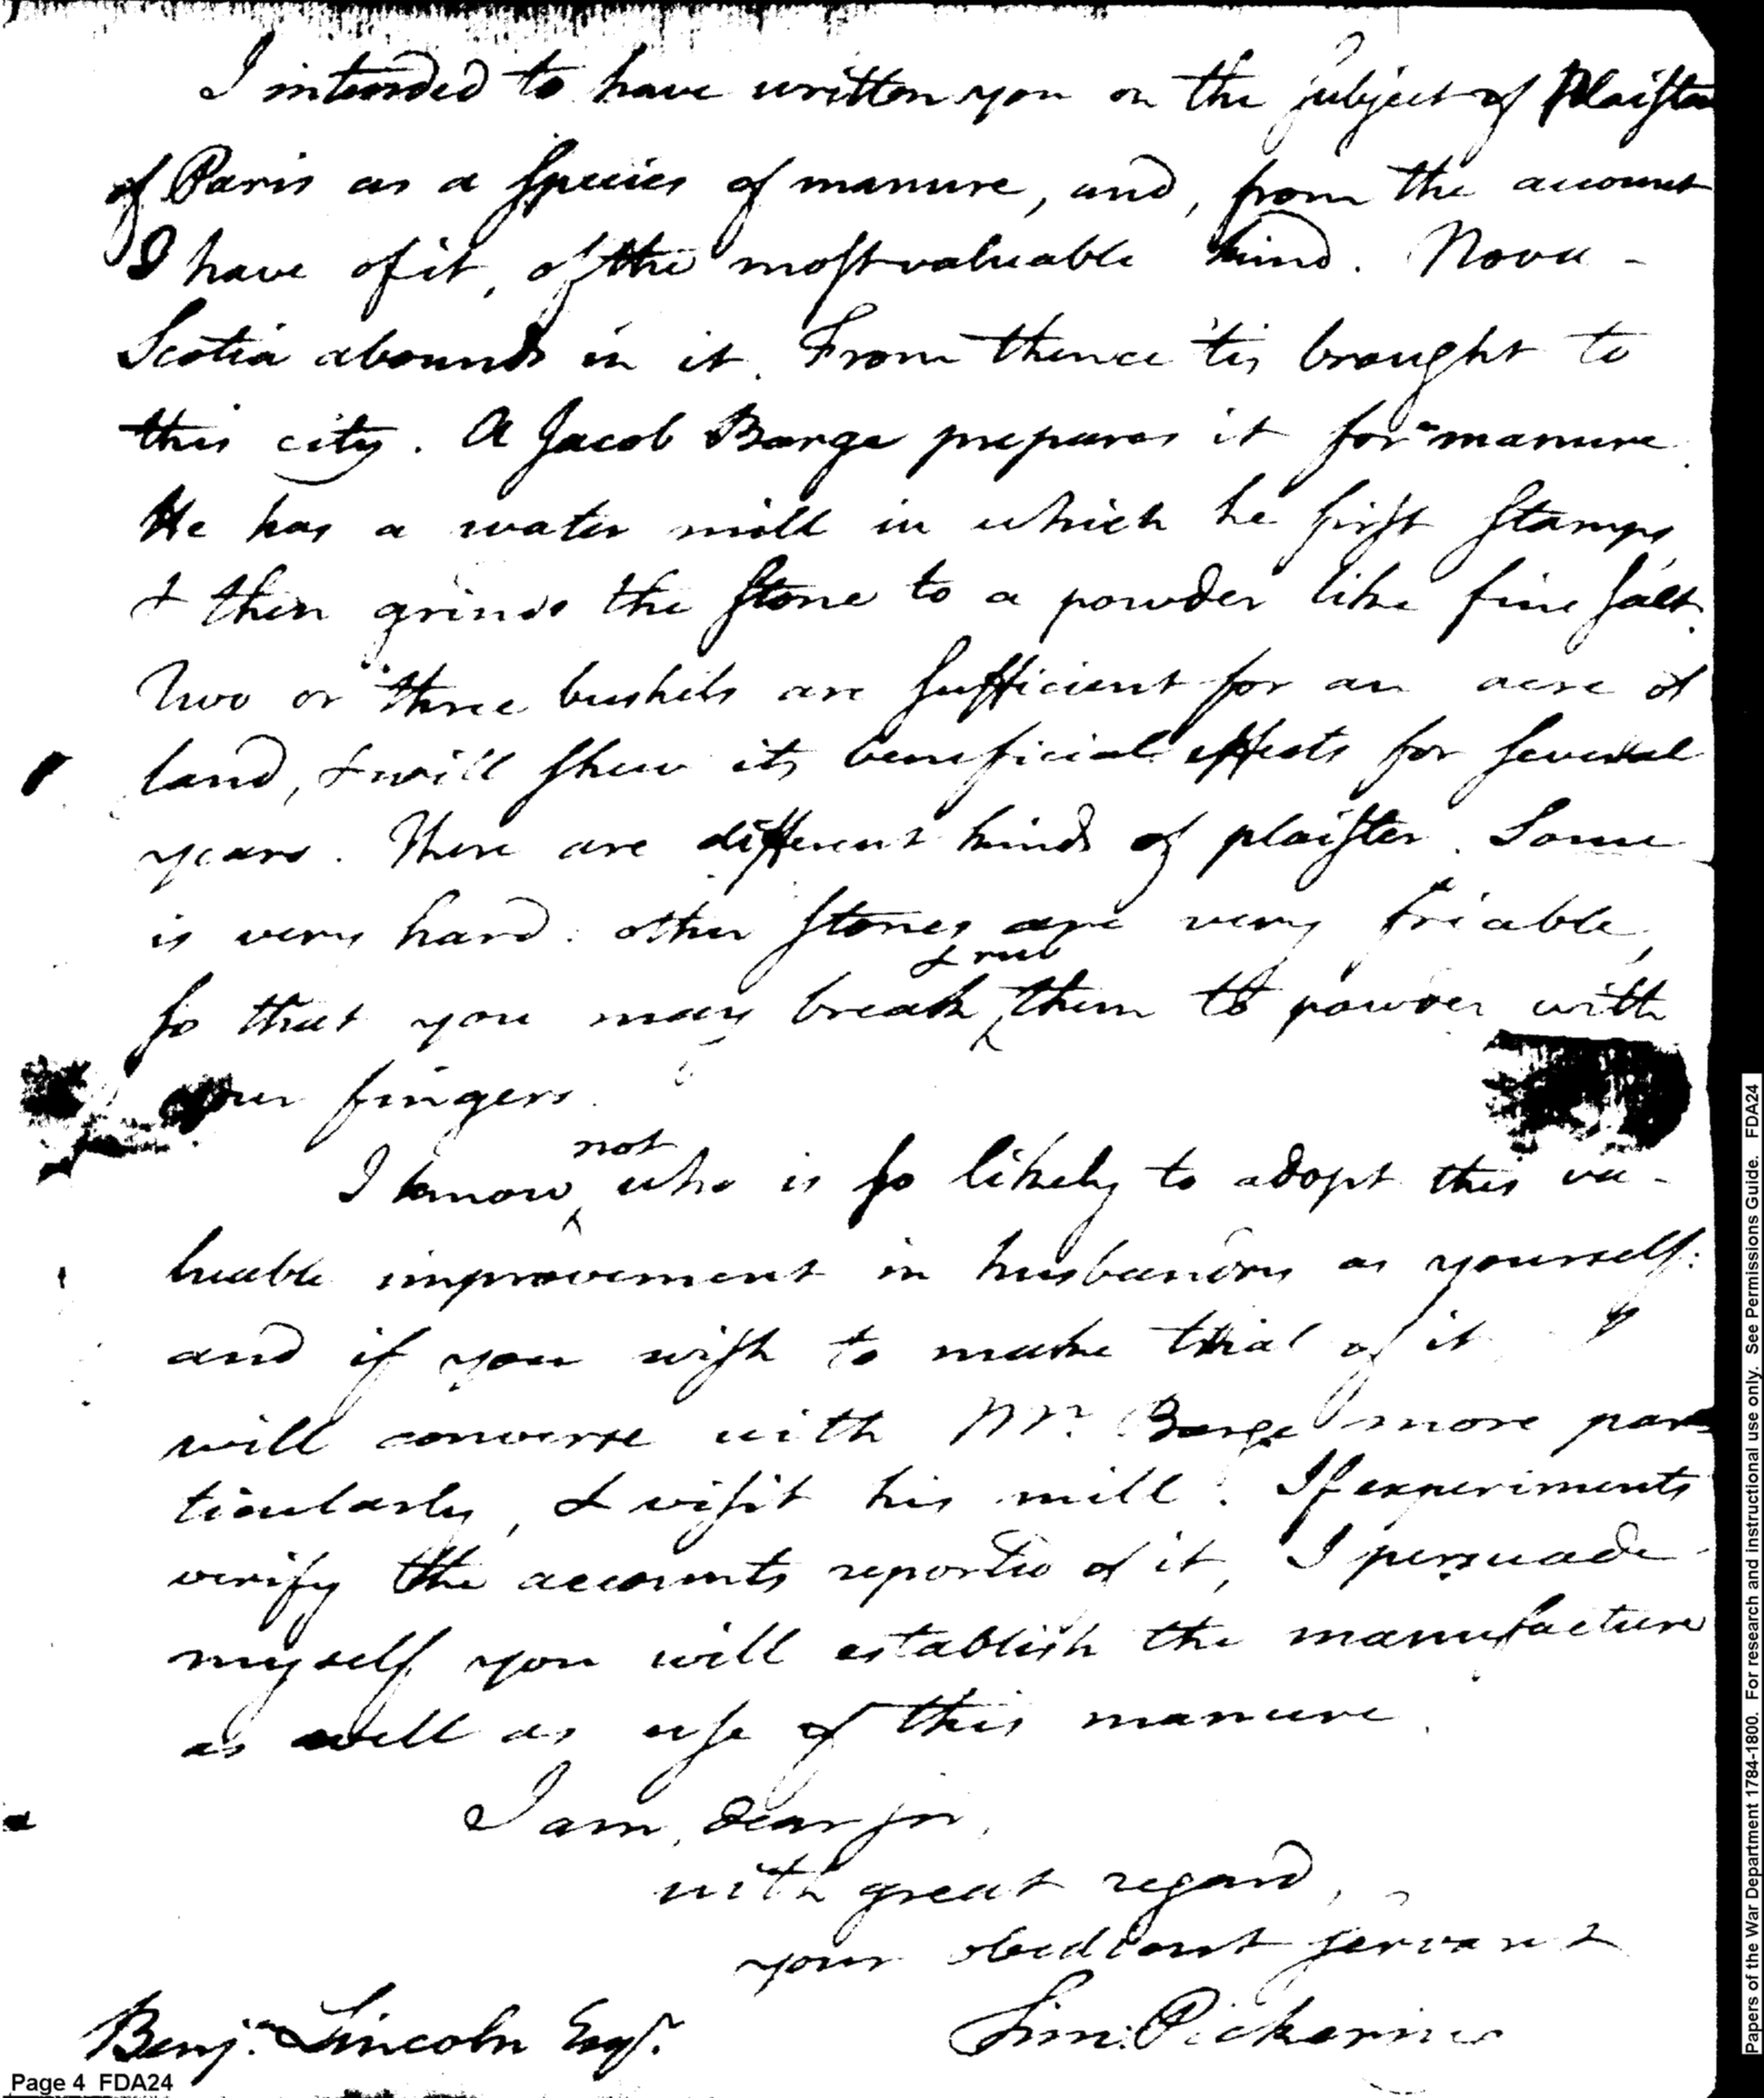 I intended to have written you on the subject of Plaister
of Paris as a species of manure, and, from the account
I have of it, of the most valuable kind. Nova-
Scotia abounds in it. From thence 'tis brought to
this city. A Jacob Barge prepares it for manure.
He has a water mill in which he first stamps
& then grinds the stone to a powder like fine salt.
Two or three bushels are sufficient for an acre of
land, & will shew its beneficial effects for several
years. There are different kinds of plaister. Some
is very hard: other stones are very friable,
& rub
so that you may break ^ them to powder with
your fingers.
not
I know ^ who is so likely to adopt this va-
luable improvement in husbandry as yourself:
and if you wish to make trial of it I
will converse with Mr. Barge more par-
ticularly, & visit his mill. If experiments
verify the accounts reported of it, I persuade
myself you will establish the manufacture
as well as use of this manure.
I am, dear sir,
with great regard,
your obedient servant
Benjn. Lincoln Esqr.
Tim: Pickering
Page 4 FDA24
Papers of the War Department 1784-1800. For research and instructional use only. See Permissions Guide. FDA24